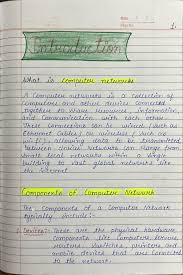 1.
Introduction
What is Computer network
A Computer networks is a collection of
Computers and other devices connected
together to share resource, information,
and communication with each other.
These connections can be wired (such as
Ethernet Cables) or wireless (such as
wi-fi), allowing data to be transmitted
between devices. Networks can range from
small local networks within a single
building to vast global networks like
the internet.
Components of Computer Network
The Components of a Computer Network
typically include:-
1. Devices:- These are the physical hardware
components like computers, servers,
routers, switches, printers, and
mobile devices that are connected
to the network.